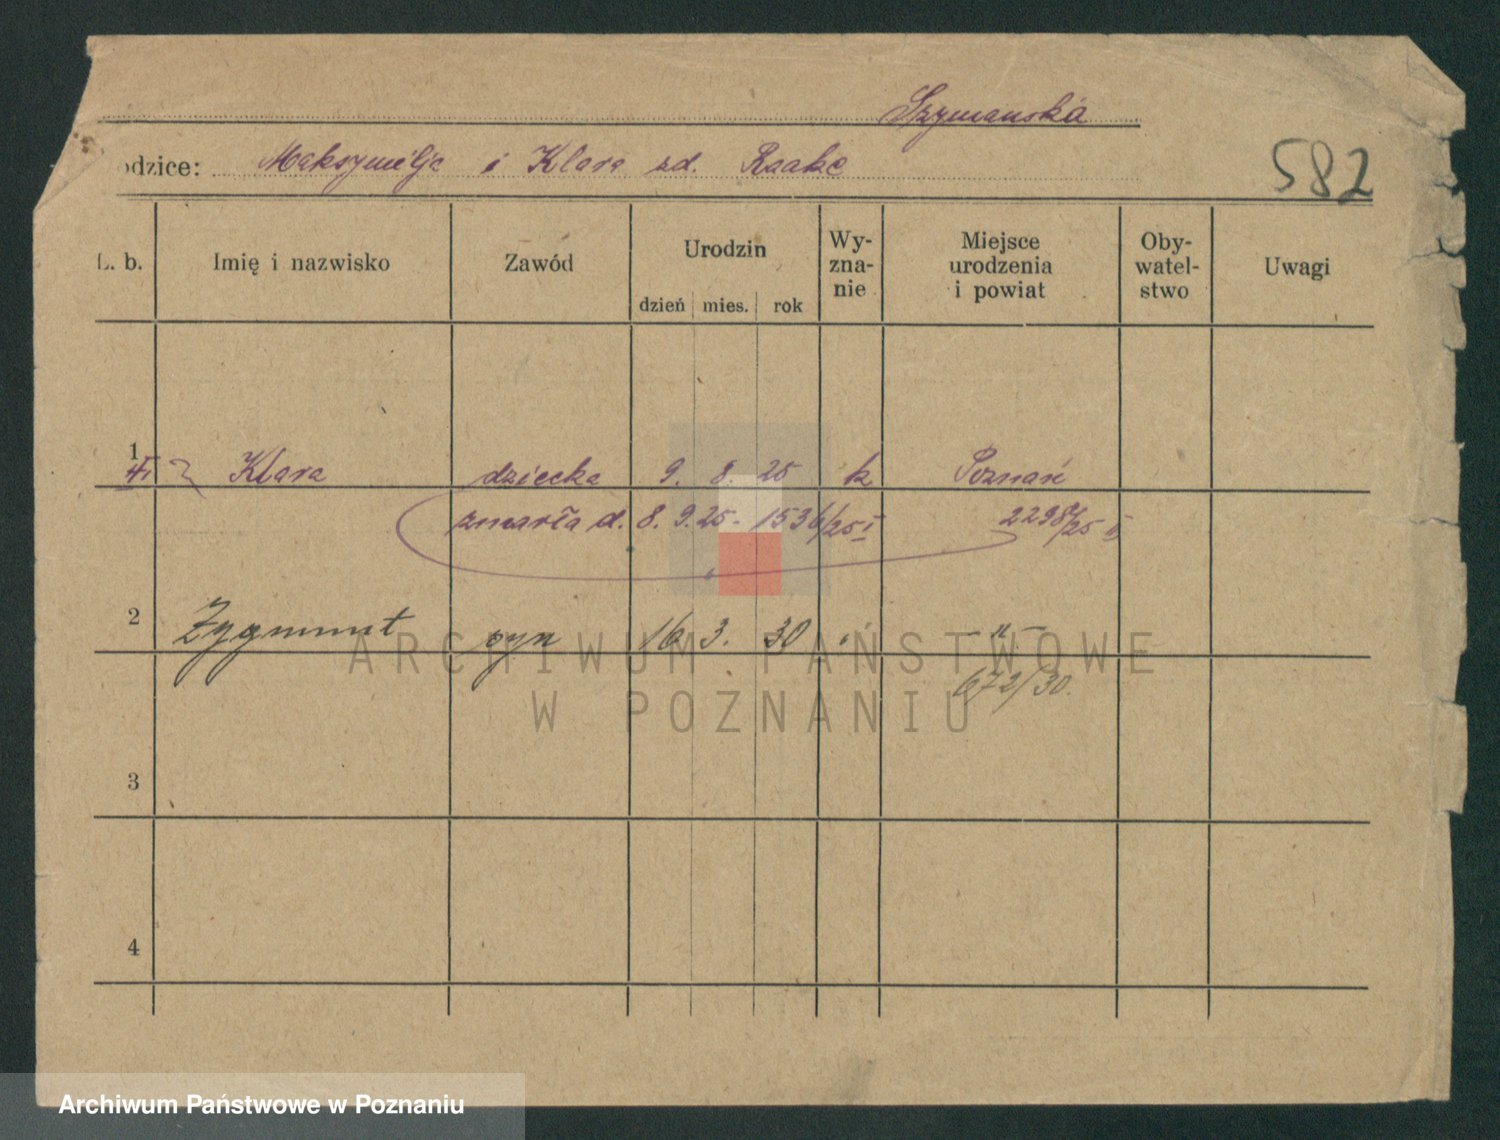 Szymanska
odzice: Maksymilja i Klara zd. Raake
582
L. b. Imię i nazwisko Zawód Urodzin dzień mies. rok Wy-zna-nie Miejsce urodzenia i powiat Oby-watel-stwo Uwagi
1 Klara dziecko 9. 8. 25 k Poznań
zmarła d. 8. 9. 25. 1536/25 I 2298/25 II
2 Zygmunt syn 16 3. 30 " – " –
672/30.
3
4
ARCHIWUM PAŃSTWOWE
W POZNANIU
Archiwum Państwowe w Poznaniu